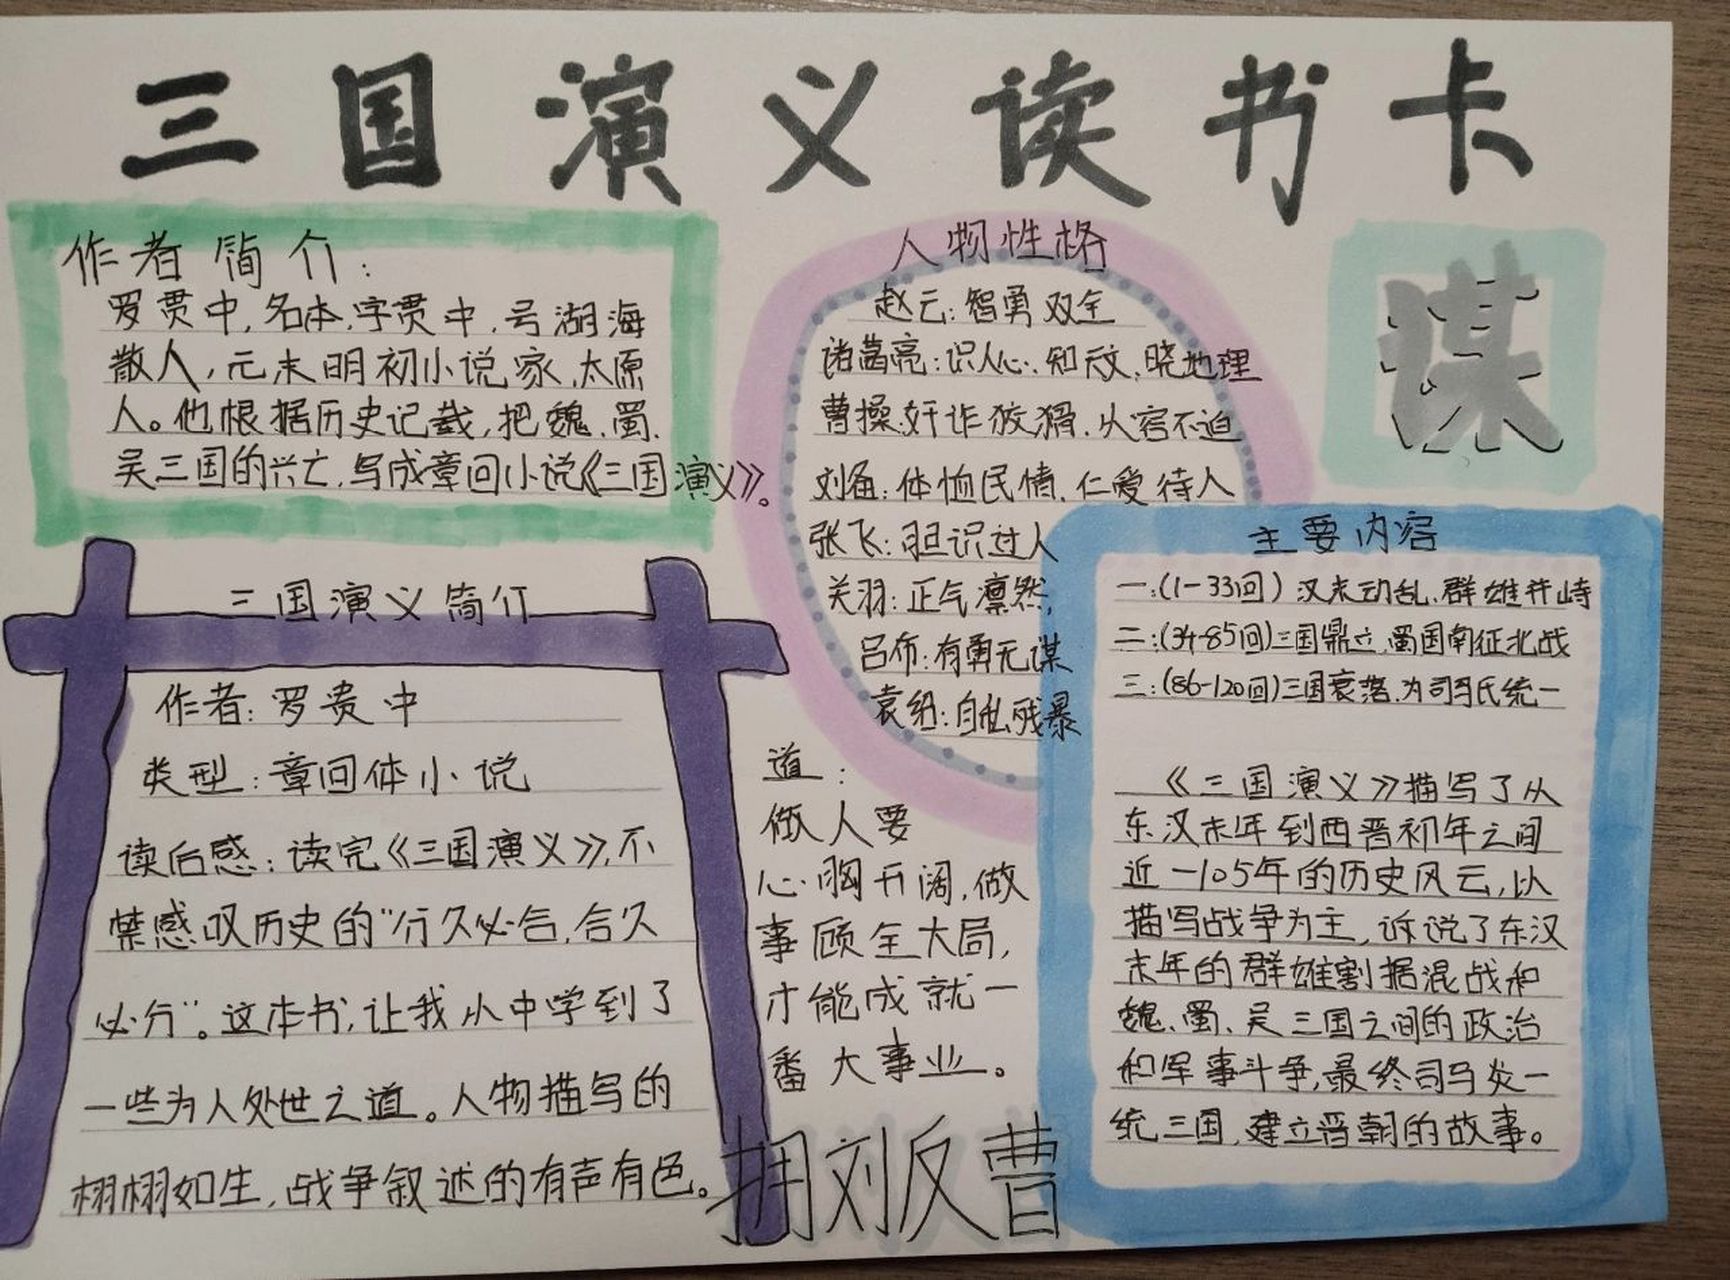 三国演义读书卡
作者简介：
罗贯中,名本,字贯中,号湖海
散人,元末明初小说家,太原
人。他根据历史记载,把魏、蜀、
吴三国的兴亡,写成章回小说《三国演义》。
三国演义简介
作者:罗贯中
类型:章回体小说
读后感:读完《三国演义》,不
禁感叹历史的“分久必合,合久
必分”。这本书,让我从中学到了
一些为人处世之道。人物描写的
栩栩如生,战争叙述的有声有色。
人物性格
赵云:智勇双全
诸葛亮:识人心、知天文、晓地理
曹操:奸诈狡猾、从容不迫
刘备:体恤民情、仁爱待人
张飞:胆识过人
关羽:正气凛然,
吕布:有勇无谋
袁绍:自乱残暴
道:
做人要
心胸开阔,做
事顾全大局,
才能成就一
番大事业。
拥刘反曹
谋
主要内容
一:(1-33回)汉末动乱、群雄并峙
二:(34-85回)三国鼎立,蜀国南征北战
三:(86-120回)三国衰落,为司马氏统一
《三国演义》描写了从
东汉末年到西晋初年之间
近一105年的历史风云,以
描写战争为主,诉说了东汉
末年的群雄割据混战和
魏、蜀、吴三国之间的政治
和军事斗争,最终司马炎一
统三国,建立晋朝的故事。